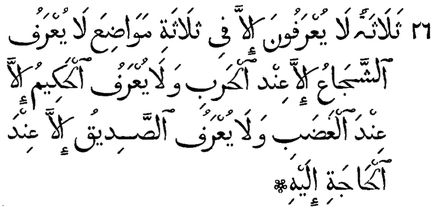 ٢٦ ثَلَاثَةٌ لَا يُعْرَفُونَ إِلَّا فِي ثَلَاثَةِ مَوَاضِعَ لَا يُعْرَفُ
ٱلشُّجَاعُ إِلَّا عِنْدَ ٱلْحَرْبِ وَلَا يُعْرَفُ ٱلْحَكِيمُ إِلَّا
عِنْدَ ٱلْغَضَبِ وَلَا يُعْرَفُ ٱلصَّدِيقُ إِلَّا عِنْدَ
ٱلْحَاجَةِ إِلَيْهِ *